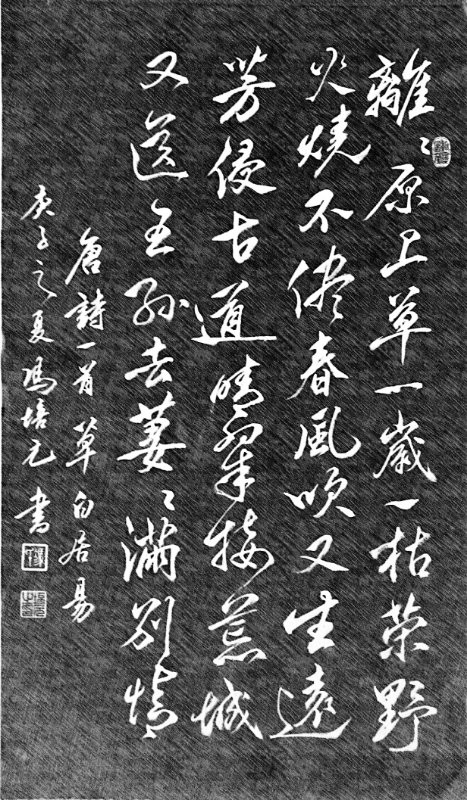 離〻原上草一歲一枯榮野
火燒不儘春風吹又生遠
芳侵古道晴翠接荒城
又送王孫去萋〻滿別情
唐詩一首草白居易
庚子之夏馮培元書